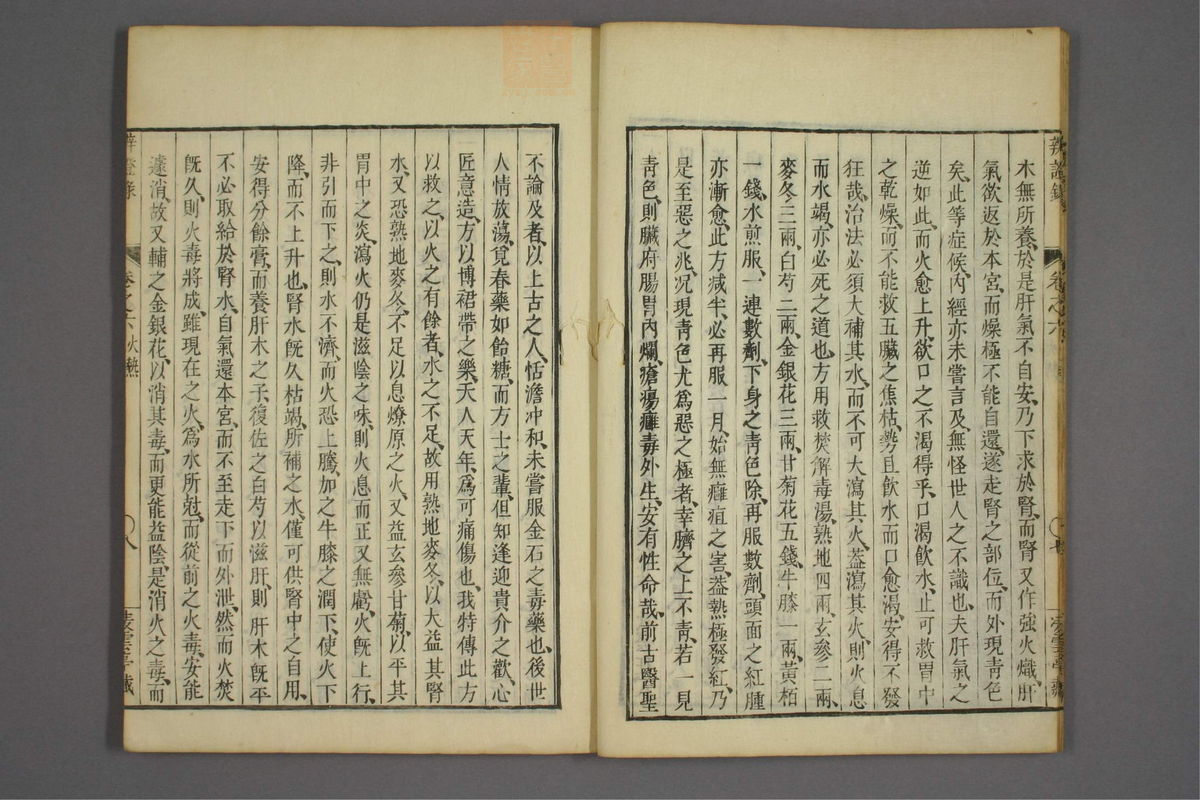 木無所養、於是肝氣不自安、乃下求於腎、而腎又作強火熾、肝
氣欲返於本宮、而燥極不能自還、遂走腎之部位、而外現青色
矣、此等症候、內經亦未嘗言及、無怪世人之不識也、夫肝氣之
逆如此、而火愈上升、欲口之不渴得乎、口渴飲水、止可救胃中
之乾燥、而不能救五臟之焦枯、勢且飲水而口愈渴、安得不發
狂哉、治法必須大補其水、而不可大瀉其火、葢瀉其火、則火息
而水竭、亦必死之道也、方用救焚解毒湯、熟地四兩、玄參二兩、
麥冬三兩、白芍二兩、金銀花三兩、甘菊花五錢、牛膝一兩、黃栢
一錢、水煎服、一連數劑、下身之青色除、再服數劑、頭面之紅腫
亦漸愈、此方減半、必再服一月、始無癰疽之害、葢熱極發紅、乃
是至惡之兆、況現青色尤爲惡之極者、幸臍之上不青、若一見
青色、則臟府腸胃內爛、瘡瘍癰毒外生、安有性命哉、前古醫聖
不論及者、以上古之人、恬澹冲和、未嘗服金石之毒藥也、後世
人情放蕩、覓春藥如飴糖、而方士之輩、但知逢迎貴介之歡、心
匠意造、方以博裙帶之樂、夭人天年、爲可痛傷也、我特傳此方
以救之、以火之有餘者、水之不足、故用熟地麥冬、以大益其腎
水、又恐熟地麥冬、不足以息燎原之火、又益玄參甘菊、以平其
胃中之炎、瀉火仍是滋陰之味、則火息而正又無虧、火旣上行、
非引而下之、則水不濟、而火恐上騰、加之牛膝之潤下、使火下
降、而不上升也、腎水旣久枯竭、所補之水、僅可供腎中之自用、
安得分餘膏、而養肝木之子、復佐之白芍以滋肝、則肝木旣平
不必取給於腎水、自氣還本宮、而不至走下而外泄、然而火焚
旣久、則火毒將成、雖現在之火、爲水所尅、而從前之火毒、安能
遽消、故又輔之金銀花、以消其毒、而更能益陰、是消火之毒、而
卷之六
火熱